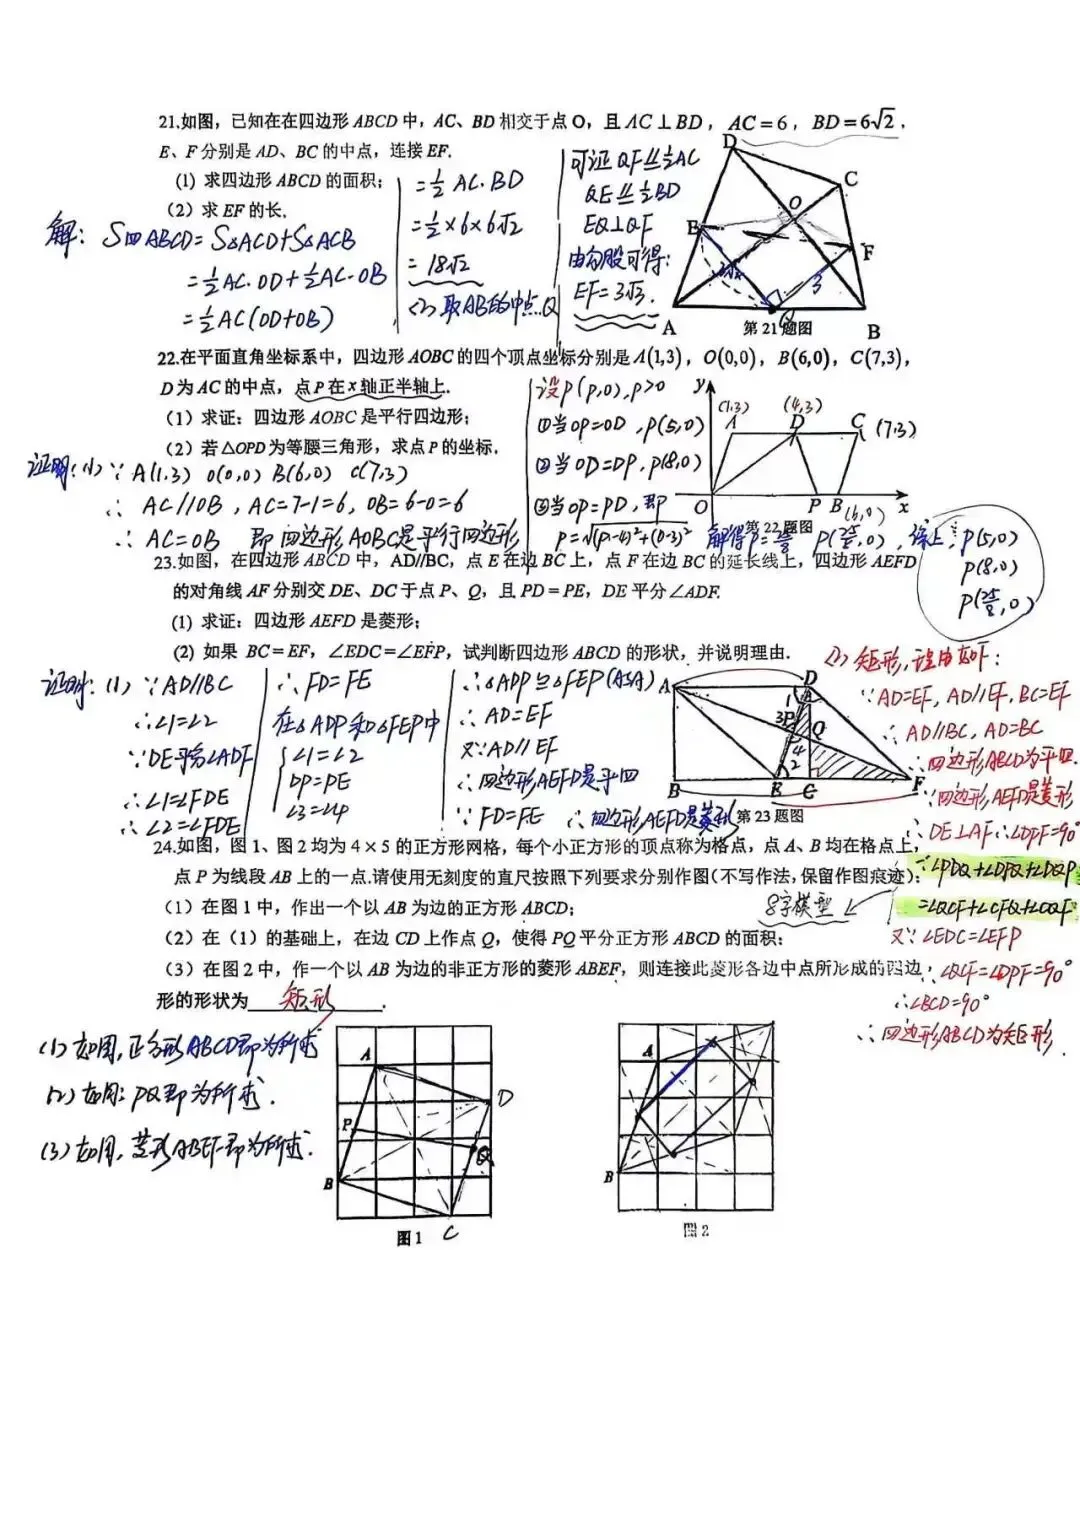 21.如图，已知在在四边形 ABCD 中，AC、BD 相交于点 O，且 AC⊥BD，AC=6，BD=6√2，
E、F 分别是 AD、BC 的中点，连接 EF.
(1) 求四边形 ABCD 的面积；
(2) 求 EF 的长.
解：S四ABCD=S△ACD+S△ACB
=½AC·OD+½AC·OB
=½AC(OD+OB)
=½AC·BD
=½×6×6√2
=18√2
(2) 取AB的中点Q
可证 QF∥½AC
QE∥½BD
EQ⊥QF
由勾股可得：
EF=3√3.
D
C
O
E
F
3
A
Q
B
第 21 题图
22.在平面直角坐标系中，四边形 AOBC 的四个顶点坐标分别是 A(1,3)，O(0,0)，B(6,0)，C(7,3)，
D 为 AC 的中点，点 P 在 x 轴正半轴上.
(1) 求证：四边形 AOBC 是平行四边形；
(2) 若△OPD 为等腰三角形，求点 P 的坐标.
证明：(1) ∵ A(1,3) O(0,0) B(6,0) C(7,3)
∴ AC//OB，AC=7-1=6，OB=6-0=6
∴ AC=OB 即 四边形AOBC是平行四边形
设P(p,0),p>0
①当OP=OD，P(5,0)
②当OD=DP，P(8,0)
③当OP=PD，即
P=√(P-4)²+(0-3)²
解得P=25/8 P(25/8,0)，综上：P(5,0)
P(8,0)
P(25/8,0)
y
(1,3)
(4,3)
A D C (7,3)
O P B x
(6,0)
第 22 题图
23.如图，在四边形 ABCD 中，AD//BC，点 E 在边 BC 上，点 F 在边 BC 的延长线上，四边形 AEFD
的对角线 AF 分别交 DE、DC 于点 P、Q，且 PD=PE，DE 平分∠ADF.
(1) 求证：四边形 AEFD 是菱形；
(2) 如果 BC=EF，∠EDC=∠EFP，试判断四边形 ABCD 的形状，并说明理由.
证明：(1) ∵AD//BC
∴∠1=∠2
∵DE平分∠ADF
∴∠1=∠FDE
∴∠2=∠FDE
∴FD=FE
在△ADP和△FEP中
∠1=∠2
DP=PE
∠3=∠4
∴△ADP≌△FEP(ASA)
∴AD=EF
又∵AD//EF
∴四边形AEFD是平四
∵FD=FE ∴四边形AEFD是菱形
A D
1
3 P Q
4
2
B E C F
第 23 题图
(2) 矩形，理由如下：
∵AD=EF, AD//EF, BC=EF
∴AD//BC, AD=BC
∴四边形ABCD为平四.
∵四边形AEFD是菱形
∴DE⊥AF ∴∠DPF=90°
∵∠PDQ+∠DPQ+∠DQP
=∠QCF+∠CFQ+∠CQF
8字模型
又∵∠EDC=∠EFP
∴∠QCF=∠DPF=90°
∴∠BCD=90°
∴四边形ABCD为矩形.
24.如图，图 1、图 2 均为 4×5 的正方形网格，每个小正方形的顶点称为格点，点 A、B 均在格点上，
点 P 为线段 AB 上的一点.请使用无刻度的直尺按照下列要求分别作图(不写作法,保留作图痕迹)；
(1) 在图 1 中，作出一个以 AB 为边的正方形 ABCD；
(2) 在（1）的基础上，在边 CD 上作点 Q，使得 PQ 平分正方形 ABCD 的面积；
(3) 在图 2 中，作一个以 AB 为边的非正方形的菱形 ABEF，则连接此菱形各边中点所形成的四边
形的形状为 矩形 .
(1) 如图,正方形ABCD即为所求
(2) 如图：PQ即为所求.
(3) 如图,菱形ABEF即为所求.
A
D
P
Q
B
C
图 1
A
B
图 2